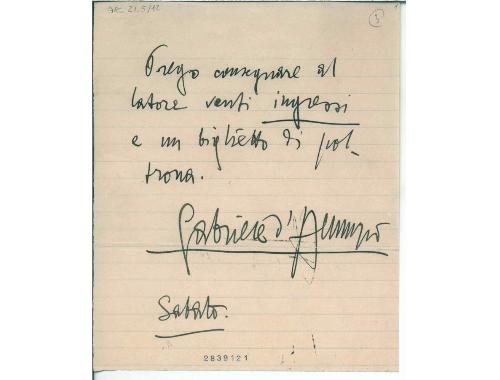 ARC. 21.5/12
5
Prego consegnare al
latore venti ingressi
e un biglietto di pol-
trona.
Gabriele d'Annunzio
Sabato.
2839121